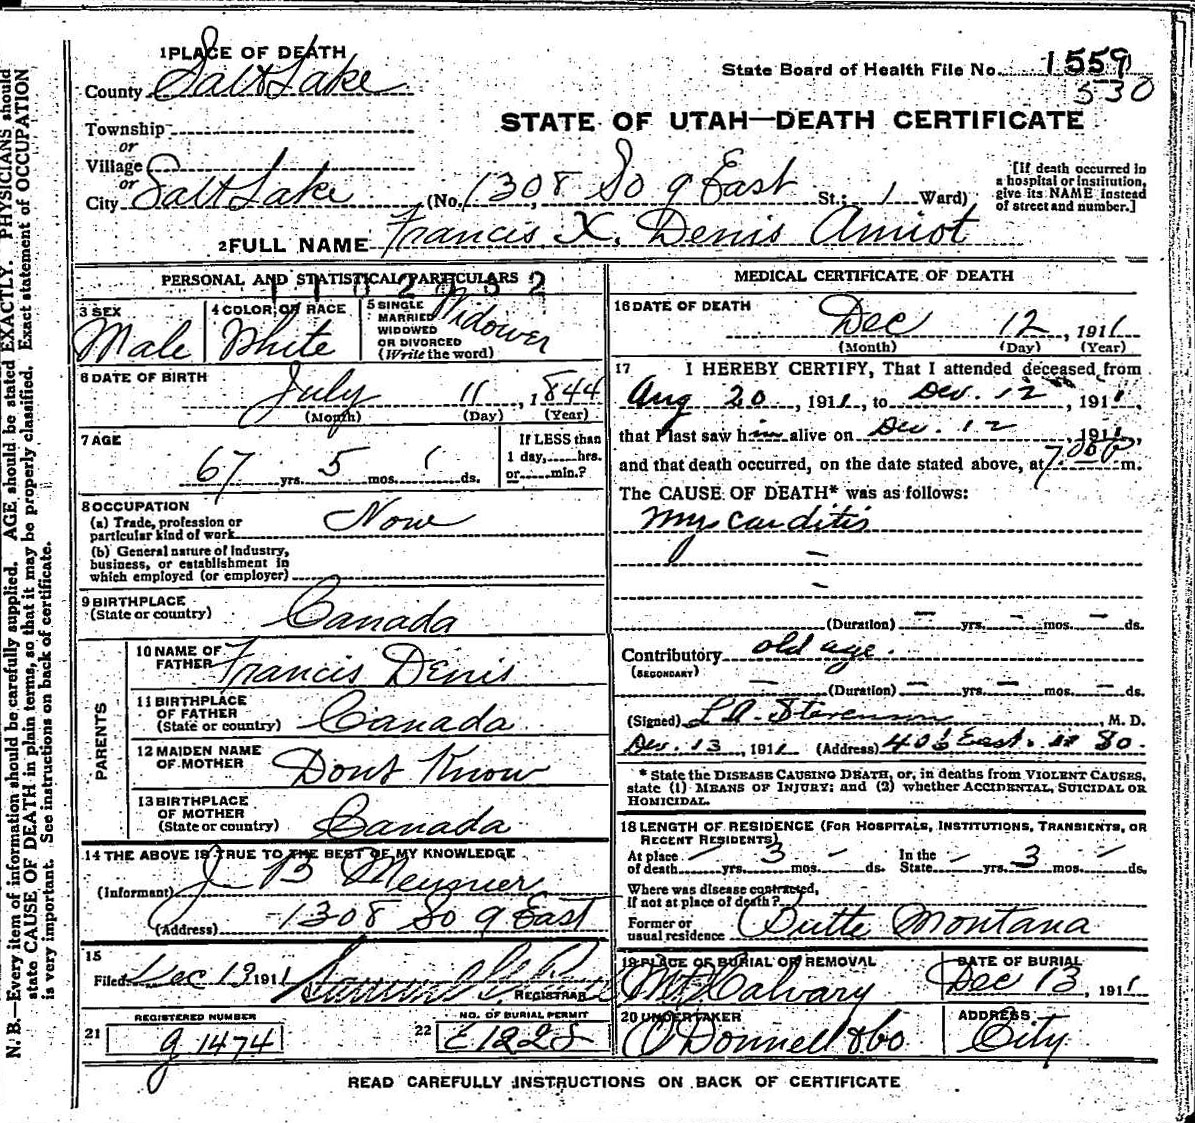 1 PLACE OF DEATH
County Salt Lake
State Board of Health File No. 1559
530
Township
or
Village
or
STATE OF UTAH—DEATH CERTIFICATE
City Salt Lake (No. 1308 So 9 East St.; 1 Ward)
[If death occurred in
a hospital or institution,
give its NAME instead
of street and number.]
2 FULL NAME Francis X. Denis Amiot
PERSONAL AND STATISTICAL PARTICULARS
3 SEX
Male
4 COLOR OR RACE
White
5 SINGLE
MARRIED
WIDOWED
OR DIVORCED
(Write the word)
Widower
6 DATE OF BIRTH
July 11, 1844
(Month) (Day) (Year)
7 AGE
67 yrs. 5 mos. 1 ds.
If LESS than
1 day, hrs.
or min.?
8 OCCUPATION
(a) Trade, profession or
particular kind of work None
(b) General nature of Industry,
business, or establishment in
which employed (or employer)
9 BIRTHPLACE
(State or country) Canada
PARENTS
10 NAME OF
FATHER Francis Denis
11 BIRTHPLACE
OF FATHER
(State or country) Canada
12 MAIDEN NAME
OF MOTHER Dont Know
13 BIRTHPLACE
OF MOTHER
(State or country) Canada
14 THE ABOVE IS TRUE TO THE BEST OF MY KNOWLEDGE
(Informant) J B Meunier
(Address) 1308 So 9 East
15
Filed Dec 13 1911
REGISTRAR
REGISTERED NUMBER
21 g 1474
NO. OF BURIAL PERMIT
22 E1228
MEDICAL CERTIFICATE OF DEATH
16 DATE OF DEATH
Dec 12, 1911
(Month) (Day) (Year)
17 I HEREBY CERTIFY, That I attended deceased from
Aug 20, 1911, to Dec. 12, 1911,
that I last saw him alive on Dec. 12, 1911,
and that death occurred, on the date stated above, at 7.00 P m.
The CAUSE OF DEATH* was as follows:
Myocarditis
(Duration) — yrs. — mos. — ds.
Contributory old age.
(SECONDARY)
— (Duration) — yrs. — mos. — ds.
(Signed) L A Stevenson, M. D.
Dec. 13, 1911 (Address) 406 East. So.
* State the DISEASE CAUSING DEATH, or, in deaths from VIOLENT CAUSES,
state (1) MEANS OF INJURY; and (2) whether ACCIDENTAL, SUICIDAL OR
HOMICIDAL.
18 LENGTH OF RESIDENCE (FOR HOSPITALS, INSTITUTIONS, TRANSIENTS, OR
RECENT RESIDENTS)
At place
of death — yrs. 3 mos. — ds. In the
State — yrs. 3 mos. — ds.
Where was disease contracted,
if not at place of death?
Former or
usual residence Butte Montana
19 PLACE OF BURIAL OR REMOVAL
Mt Calvary
DATE OF BURIAL
Dec 13, 1911
20 UNDERTAKER
O'Donnell & Co
ADDRESS
City
READ CAREFULLY INSTRUCTIONS ON BACK OF CERTIFICATE
N. B.—Every item of information should be carefully supplied. AGE should be stated EXACTLY. PHYSICIANS should
state CAUSE OF DEATH in plain terms, so that it may be properly classified. Exact statement of OCCUPATION
is very important. See instructions on back of certificate.